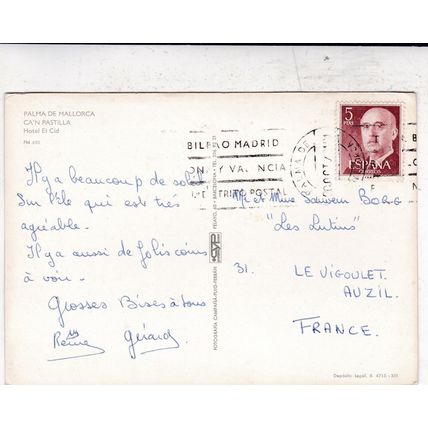 PALMA DE MALLORCA
CA'N PASTILLA
Hotel El Cid
Il y a beaucoup de soleil
sur l'île qui est très
agréable.
Il y a aussi de jolis coins
à voir.
Grosses Bises à tous
Gérard
BILBAO MADRID
VALENCIA
DISTRITO POSTAL
5
PTAS
ESPAÑA
CORREOS
Mr et Mme
"Les Lutins"
31. LE VIGOULET.
AUZIL.
FRANCE.
FOTOGRAFIA CAMPAÑÁ-PUIG-FERRÁN
Depósito Legal, B. 4715-XII